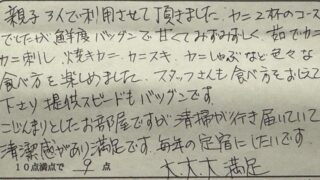 親子3人で利用させて頂きました。カニ2杯のコース
でしたが鮮度バツグンで甘くてみずみずしく、茹でカニ
カニ刺し、焼きカニ、カニスキ、カニしゃぶなど色々な
食べ方を楽しめました。スタッフさんも食べ方をおしえて
下さり提供スピードもバツグンです。
こじんまりとしたお部屋ですが清掃が行き届いていて
清潔感があり満足です。毎年の定宿にしたいです
10点満点で 9 点 大大大満足